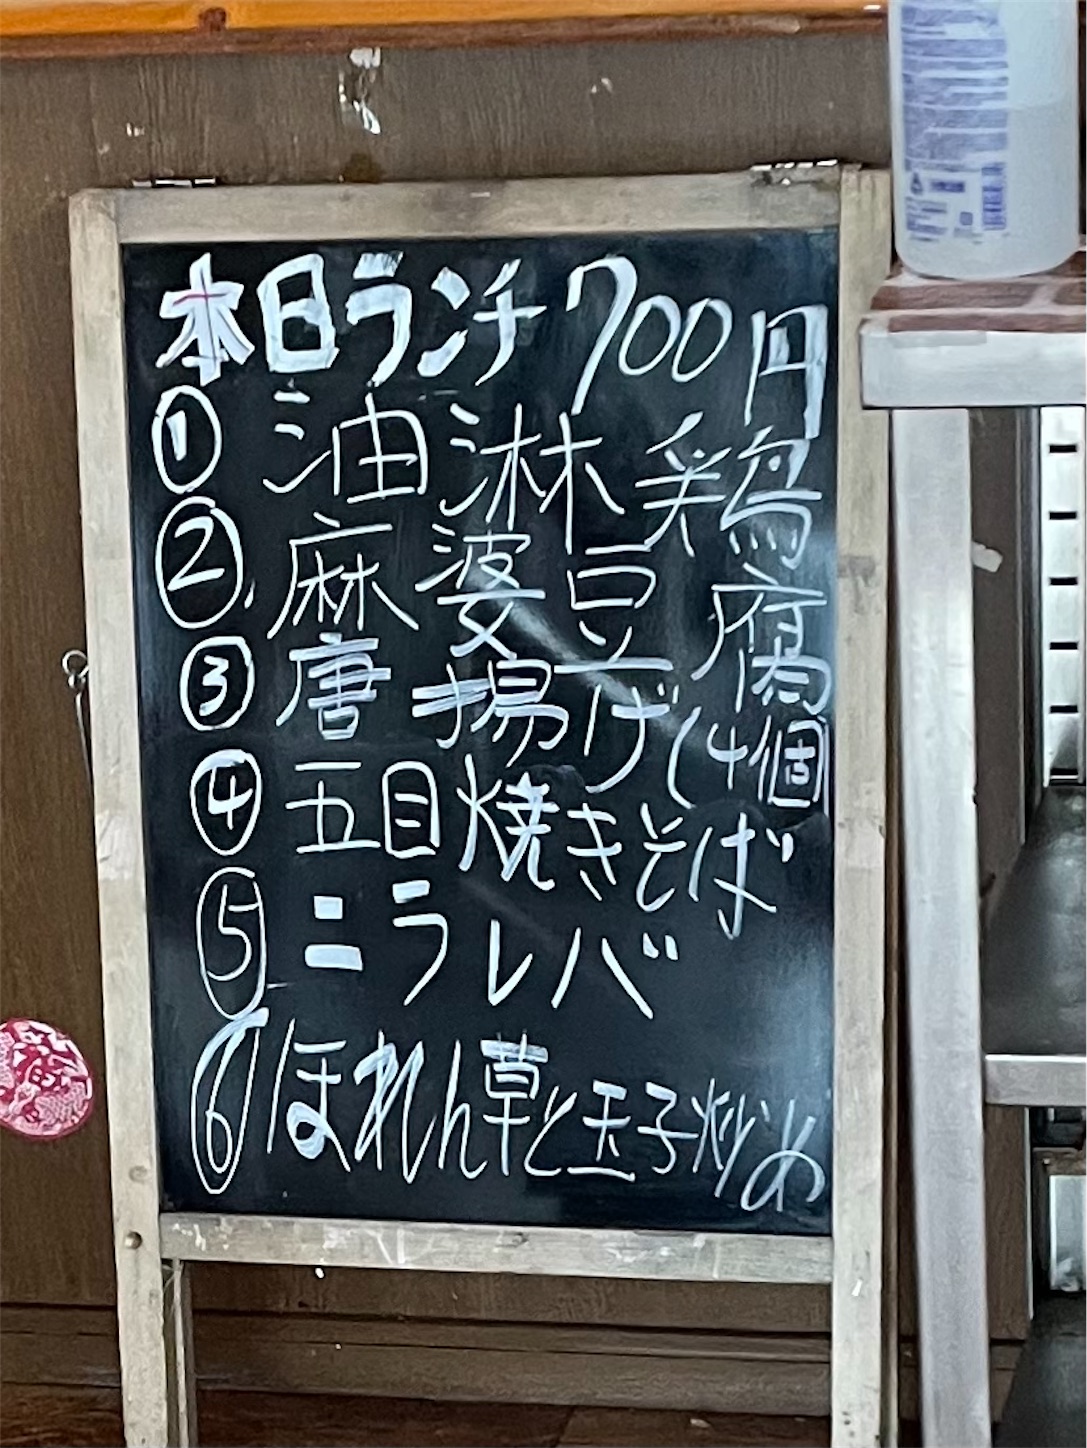 本日ランチ700円
① 油淋鶏
② 麻婆豆腐
③ 唐揚げ(4個
④ 五目焼きそば
⑤ ニラレバ
⑥ ほれん草と玉子炒め